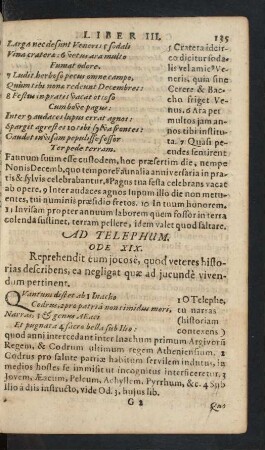 LIBER III. 135
Larga nec desunt Veneris sodali
Vina crateræ: 6 vetus ara multo
Fumat odore.
7 Ludit herboso pecus omne campo,
Quum tibi nonæ redeunt Decembres:
8 Festus in pratis vacat otioso
Cum bove pagus:
Inter 9 audaces lupus errat agnos:
Spargit agrestes 10 tibi sylva frontes:
Gaudet invisam pepulisse fossor
Ter pede terram.
5 Cratera idcir-
co dicitur soda-
lis vel amic9 Ve-
neris, quia sine
Cerere & Bac-
cho friget Ve-
nus. 6 Ara per
multos jam an-
nos tibi institu-
ta. 7 Quasi pe-
cudes sentirent
Faunum suum esse custodem, hoc præsertim die, nempe
Nonis Decemb, quo tempore Faunalia anniversaria in pra-
tis & sylvis celebrabantur. 8 Pagus tua festa celebrans vacat
ab opere, 9 Inter audaces agnos lupum illo die non metu-
entes, tui numinis præsidio fretos. 10 In tuum honorem,
11 Invisam propter annuum laborem quem fossor in terra
colenda sustinet, terram pellere, idem valet quod saltare.
AD TELEPHUM.
ODE XIX.
Reprehendit eum jocosè, quod veteres histo-
rias describens, ea negligat quæ ad jucundè viven-
dum pertinent.
QVantum distet ab 1 Inacho
Codrus, pro patria non timidus mori,
Narras, 3 & genus Æaci
Et pugnata 4 sacro bella sub Ilio:
1 O Telephe,
tu narras
(historiam
contexens)
quod anni intercedant inter Inachum primum Argivorū
Regem, & Codrum ultimum regem Atheniensium. 2
Codrus pro salute patriæ habitum servilem indutus, in
medios hostes se immisit ut incognitus interficeretur. 3
Jovem, Æacum, Peleum, Achyllem, Pyrrhum, &c. 4 Sub
ilio à diis instructo, vide Od. 3. hujus lib.
G 2